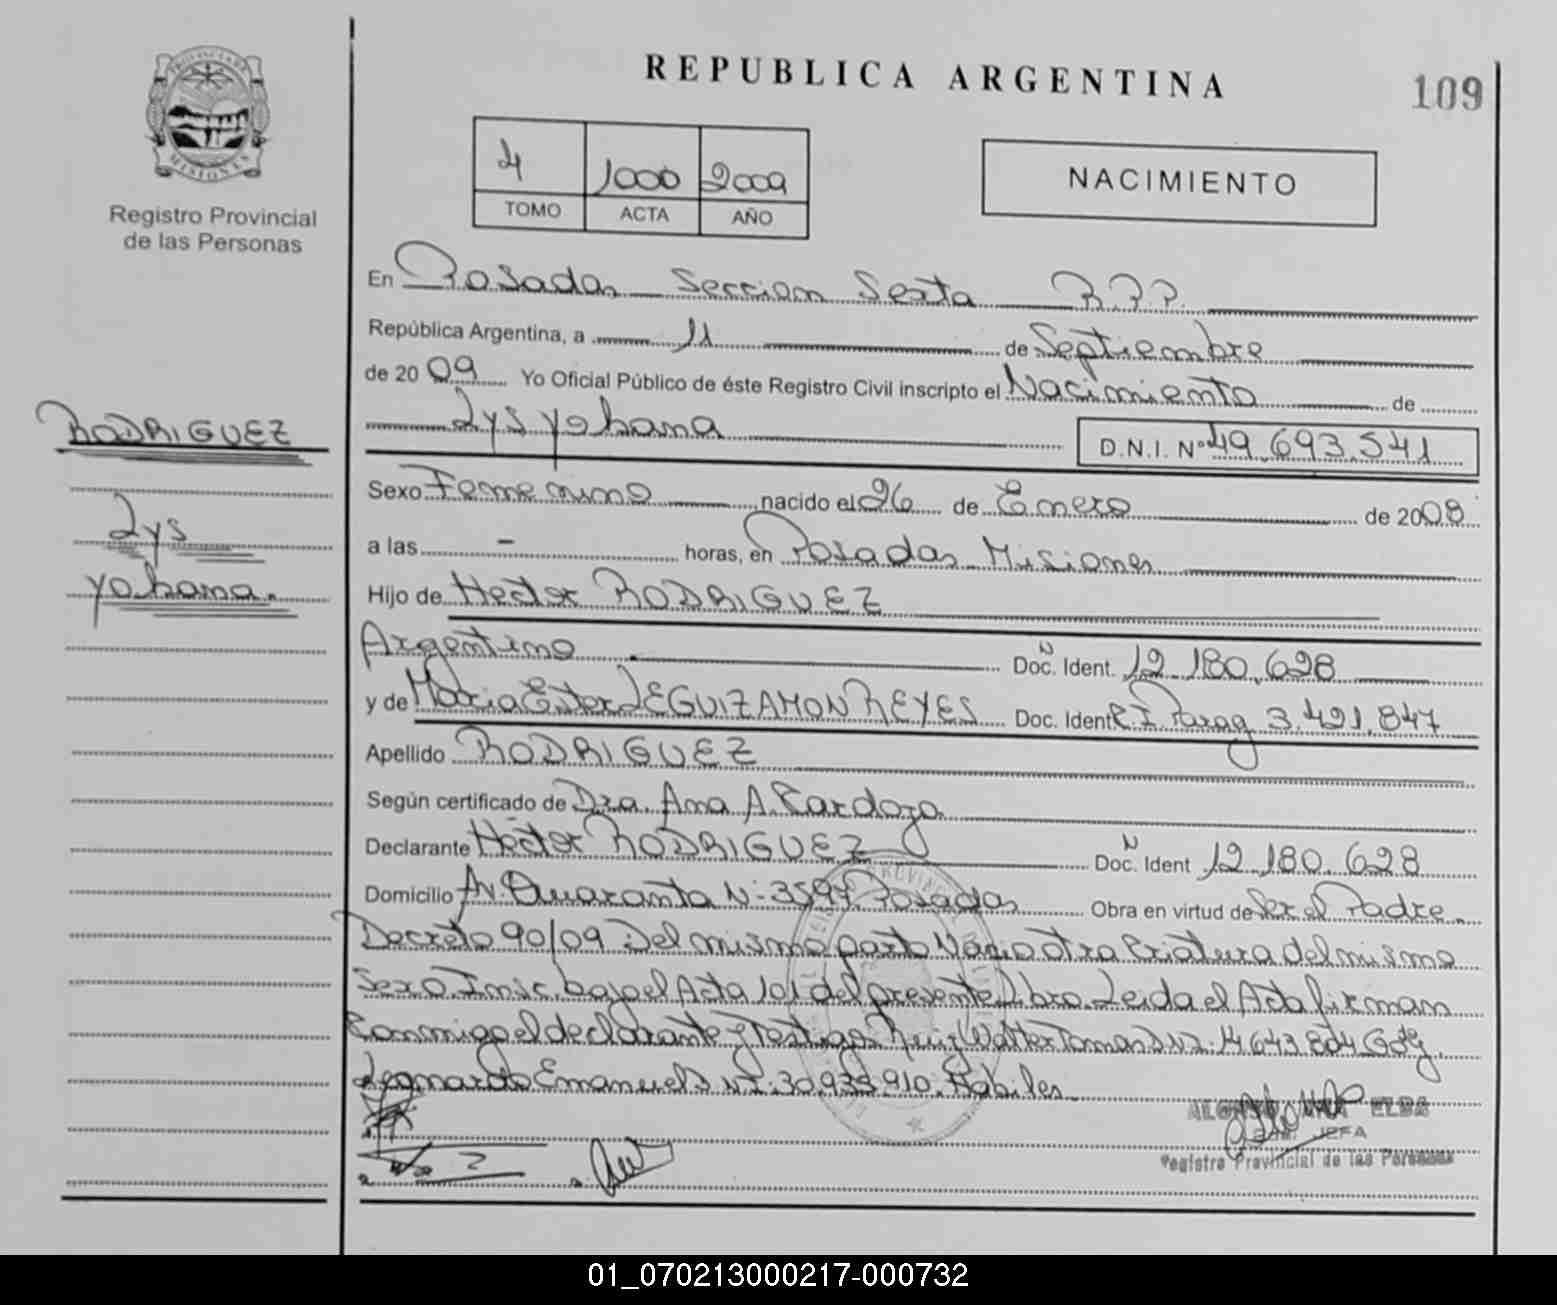 REPUBLICA ARGENTINA
109
PROVINCIA DE
MISIONES
Registro Provincial
de las Personas
4 1000 2009
TOMO ACTA AÑO
NACIMIENTO
En Posadas Seccion Sexta R.P.P.
República Argentina, a 11 de Septiembre
de 2009 Yo Oficial Público de éste Registro Civil inscripto el Nacimiento de
Lys Yohana
D.N.I. Nº 49.693.541
RODRIGUEZ
Lys
Yohana.
Sexo Femenino nacido el 26 de Enero de 2008
a las - horas, en Posadas Misiones
Hijo de Hector RODRIGUEZ
Argentino Doc. Ident. 12.180.628
y de Maria Ester LEGUIZAMON REYES Doc. Ident C.I. Parag 3.491.847
Apellido RODRIGUEZ
Según certificado de Dra. Ana A. Cardozo
Declarante Héctor RODRIGUEZ Doc. Ident 12.180.628
Domicilio Av. Quaranta N- 3597 Posadas Obra en virtud de Ser el Padre.
Decreto 90/09 Del mismo parto Nacio otra Criatura del mismo
Sexo. Insc. bajo el Acta 101 del presente Libro. Leida el Acta firman
Conmigo el declarante y Testigos Ruiz Walter Tomas DNI. 14 643 804
Leonardo Emanuel DNI. 30.935.910. Habiles
ELBA
JEFA
Registro Provincial de las Personas
01_070213000217-000732